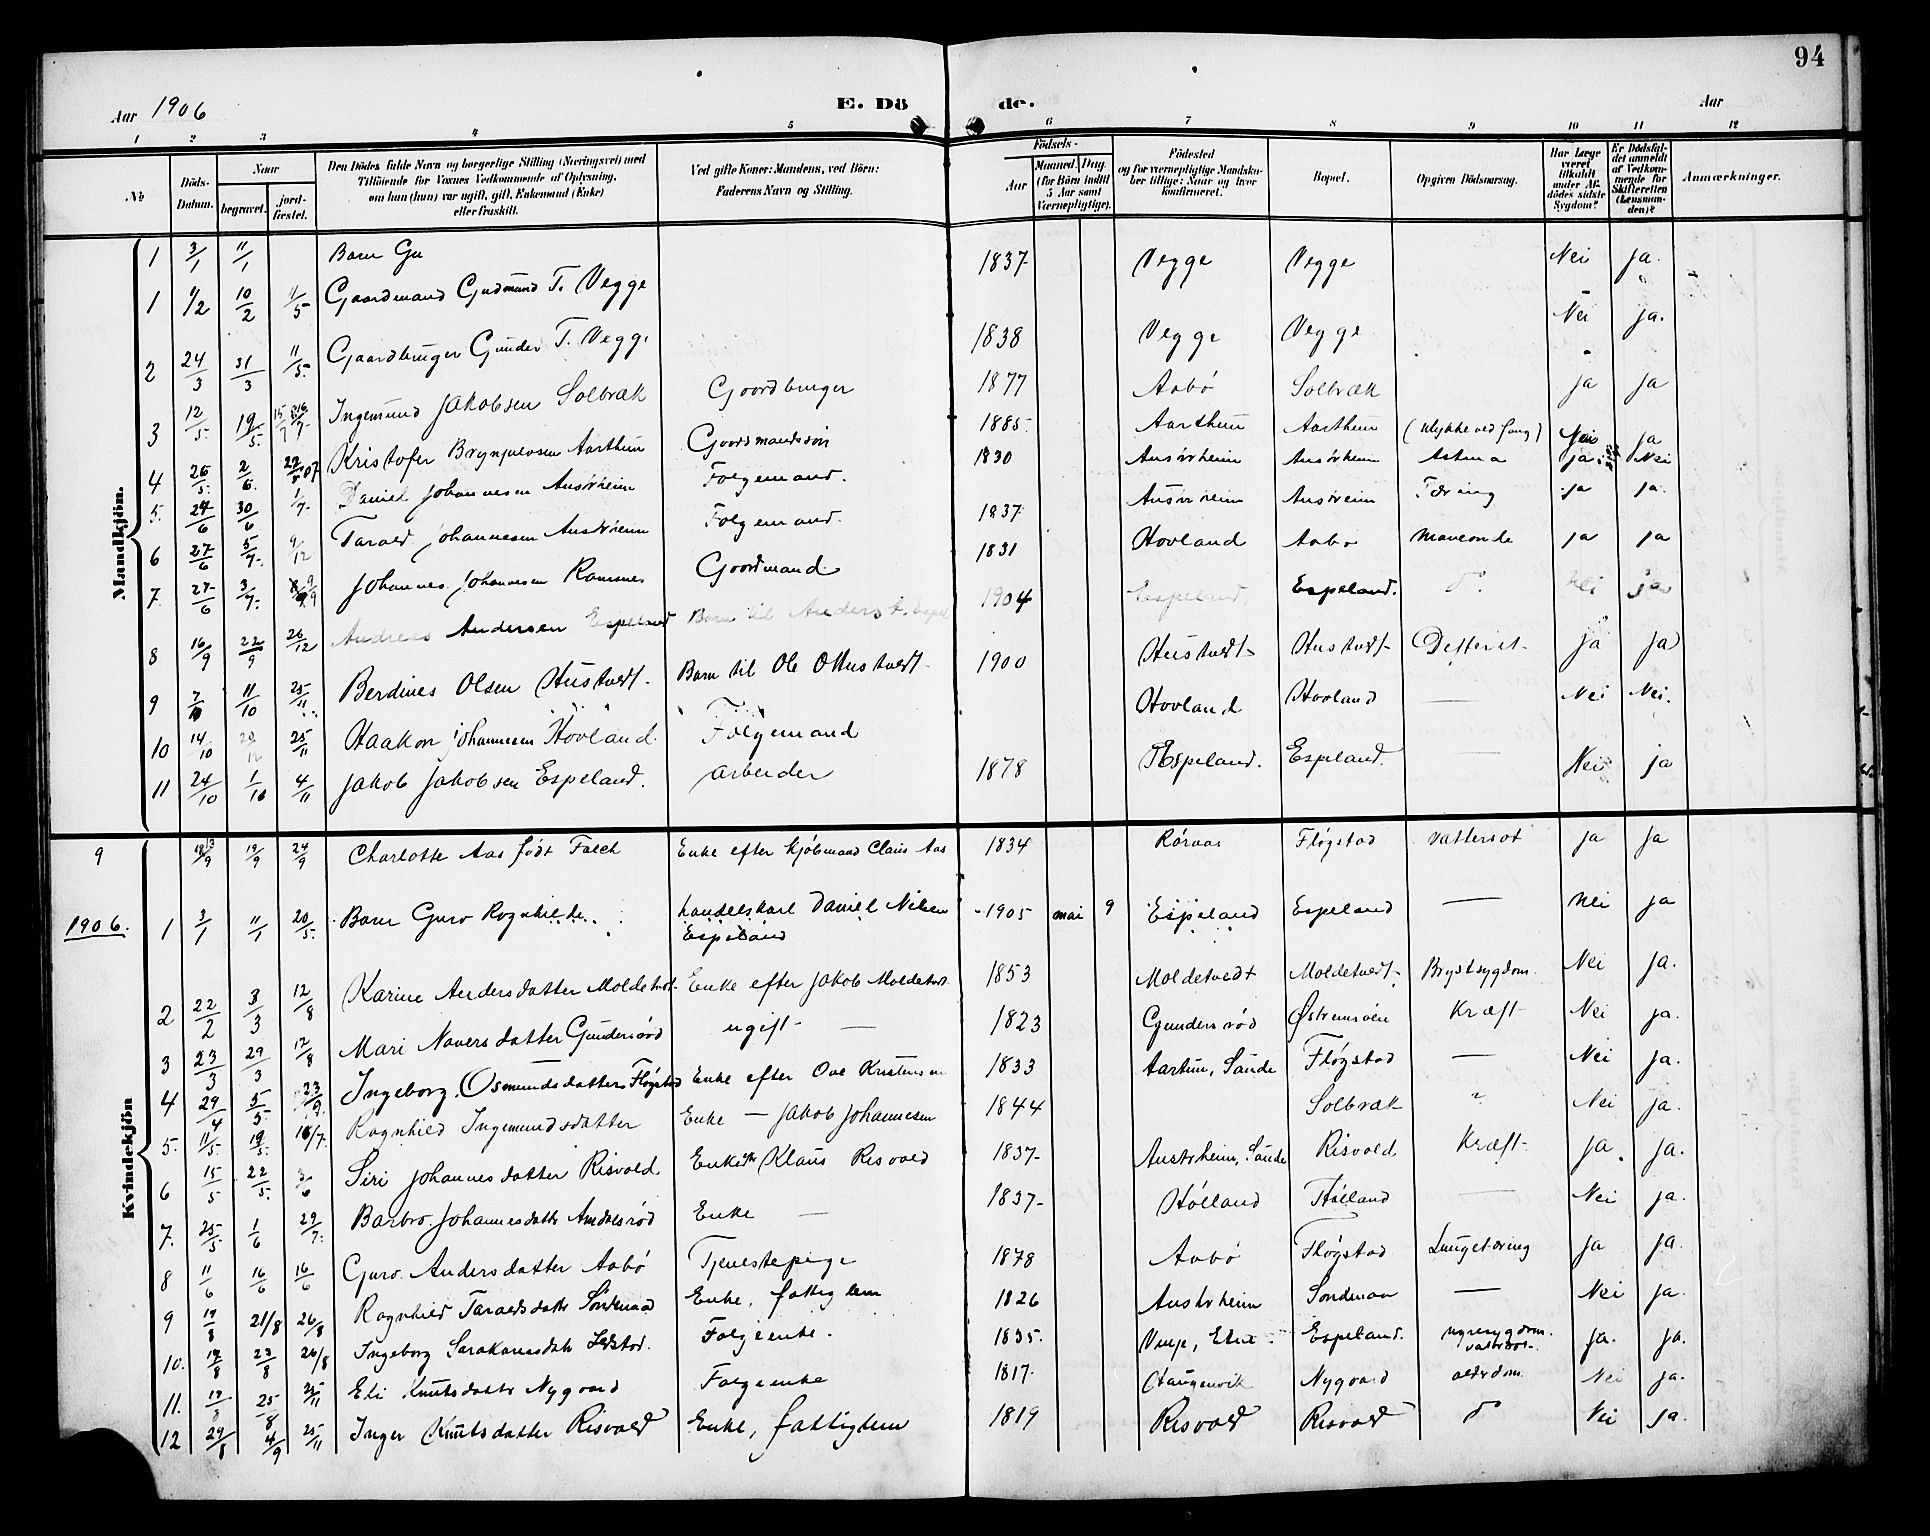 94
Aar 1906 E. Dö de. Aar
1 2 3 4 5 6 7 8 9 10 11 12
No.
Döds-Datum.
Naar
begravet.
jord-fæstet.
Den Dödes fulde Navn og borgerlige Stilling (Næringsvei) med
Tilföiende for Voxnes Vedkommende af Oplysning,
om han (hun) var ugift, gift, Enkemand (Enke)
eller fraskilt.
Ved gifte Koner: Mandens, ved Börn:
Faderens Navn og Stilling.
Födsels-
Aar
Maaned. Dag.
(for Börn indtil
5 Aar samt
Værnepligtige).
Födested
og for værnepligtige Mandskaber tillige: Naar og hvor
konfirmeret.
Bopæl.
Opgiven Dödsaarsag.
Har Læge
været
tilkaldt
under Afdödes sidste
Sygdom?
Er Dödsfaldet anmeldt
af Vedkommende for
Skifteretten
(Lensmanden)?
Anmærkninger.
Mandkjön.
1 3/1 11/1 Barn Gu 1837 Vegge Vegge Nei ja.
1 1/2 10/2 11/5 Gaardmand Gudmund T. Vegge Nei ja.
2 24/3 31/3 11/5. Gaardbruger Gunder T. Vegge 1838 Vegge Vegge
3 12/5. 19/5. Ingemund Jakobsen Solbræk Gaardbruger 1877 Aabö Solbræk ja ja
4 26/5. 2/6. Kristofer Brynjulvsen Aarthun Gaardmandssön 1885 Aarthun Aarthun (Ulykke ved fang) ja
5. 24/6 30/6 1/7. Daniel Johannesen Ausörheim Folgemand. 1830 Ausörheim Ausörheim Astma ja Nei
6 27/6 5/7. 9/12 Tarald Johannesen Austrheim Folgemand. 1837 Austrheim Ausörheim Tæring ja ja.
7. 27/6 3/7. Johannes Johannesen Ramsnes Gaardmand 1831 Hovland Aabö ja ja
8 16/9 22/9 26/12 Andreas Andersen Espeland Barn til Anders 1904 Espeland. Espeland. Nei ja
9 7/10 11/10 25/11 Berdines Olsen Hustvedt. Barn til Ole O Hustvedt 1900 Hustvedt Hustvedt Difterit ja ja
10 14/10 25/11 Haakon Johannesen Hovland Folgemand Hovland Hovland — Nei Nei.
11 24/10 1/10 4/11 Jakob Jakobsen Espeland. Arbeider 1878 Espeland. Espeland. — Nei ja
Kvindekjön
9 19/9 24/9 Charlotte Aas født Falch Enke efter Kjöbmand Claus Aas 1834 Röraas Flögstad Vattersot ja ja
1906. 1 3/1 11/1 20/5. Barn Guro Rognhilde Landelskarl Daniel Nilsen 1905 mai 9 Espeland Espeland — Nei ja
Espeland
2 22/2 3/3 12/8 Karine Andersdatter Moldetvedt. Enke efter Jakob Moldetvedt 1853 Moldetvedt Moldetvedt Brystsygdom. Nei ja.
3 23/3 29/3 12/8 Mari Naversdatter Gundersröd ugift — 1823 Gundersröd Østremsöen Kræft Nei ja.
4 29/4 5/5. 23/9. Ingeborg Osmundsdatter Flögstad Enke efter Ove Kristensen 1833 Aartun, Saude Flögstad — Nei ja.
5. 11/5. 19/5. 16/7. Rognhild Ingemundsdatter Enke — Jakob Johannesen 1844 Solbræk " Nei ja.
6 15/5 22/5. 3/6 Siri Johannesdatter Risvold Enke Klaus Risvold 1837 Austrheim, Saude Risvold Kræft ja. ja.
7. 25/5 1/6 29/7. Barbro Johannesdatter Amdalsröd Enke — 1837 Hölland Hölland — Nei ja.
8 11/6 16/6 16/6 Guro Andersdatter Aabö Tjenestepige 1878 Aabö Flögstad Lungetæring ja ja.
9 17/8 21/8 26/8 Rognhild Taraldsdatter Söndenaa Enke, fattiglem 1826 Austrheim Söndenaa — Nei ja.
10. 17/8 23/8 26/8 Ingeborg Folgeenke. 1835. Espeland. Nyresygdom. ja. ja.
Vattersot.
11. 25/8 25/11 Eli Knutsdatter Nygaard Folgeenke 1817 Nygaard alderdom. Nei ja.
12 29/8 4/9 25/11 Inger Knutsdatter Risvold Enke, fattiglem 1819 Risvold Risvold Nei ja.